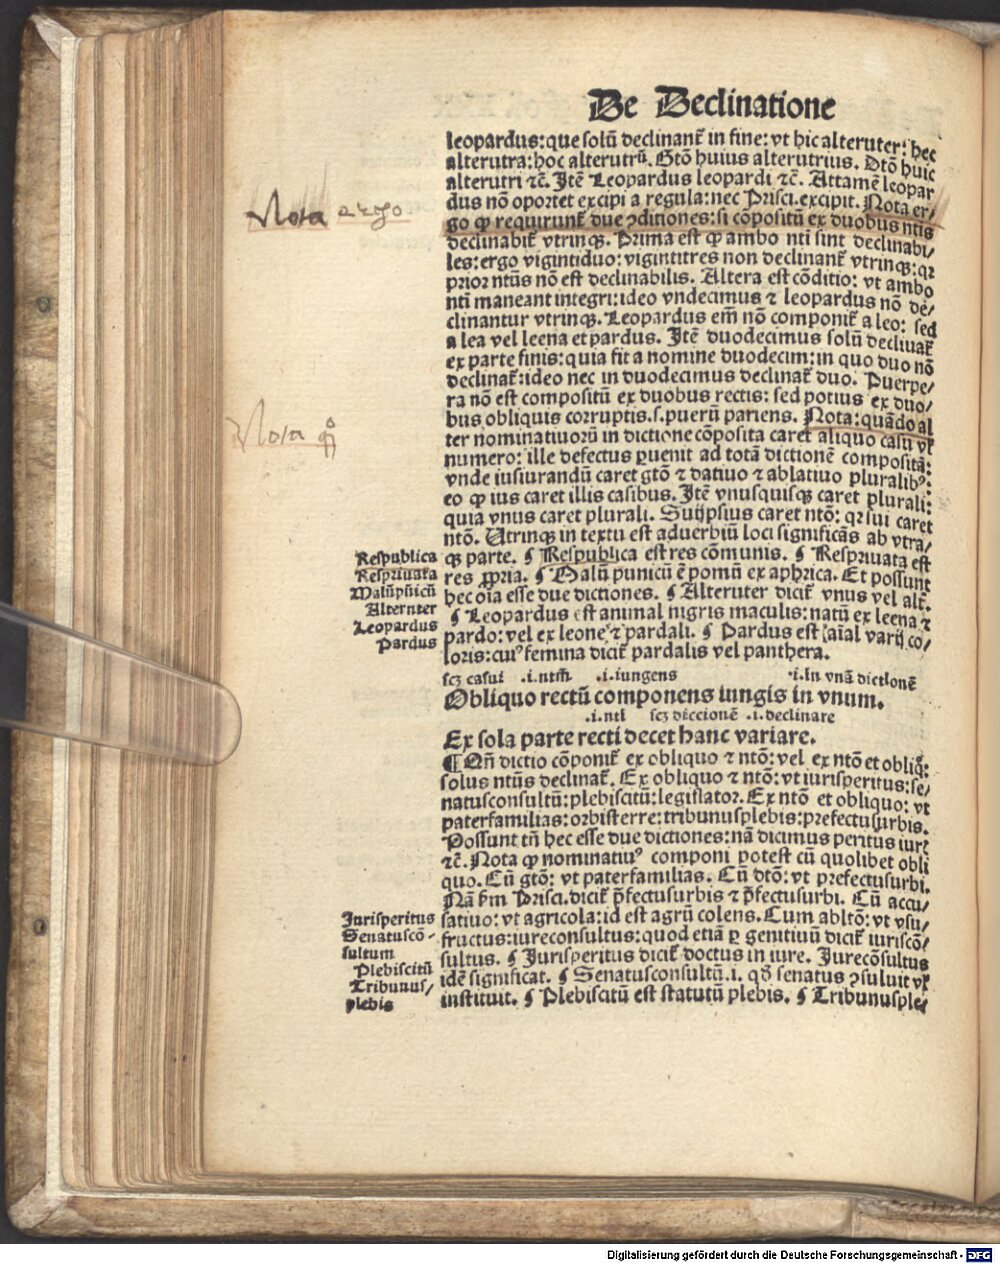 De Declinatione
leopardus: que solū declinant᷑ in fine: vt hic alteruter: hec
alterutra: hoc alterutrū. Gtō huius alterutrius. Dtō huic
alterutri ⁊c̄. Itē Leopardus leopardi ⁊c̄. Attamē leopar
dus nō oportet excipi a regula: nec Prisci. excipit. Nota er/
go ꝙ requirunt᷑ due ꝯditiones: si cōpositū ex duobus ntis
declinabit᷑ vtrinqꝫ. Prima est ꝙ ambo nti sint declinabi/
les: ergo vigintiduo: vigintitres non declinant᷑ vtrinqꝫ: qꝛ
prior ntūs nō est declinabilis. Altera est cōditio: vt ambo
nti maneant integri: ideo vndecimus ⁊ leopardus nō de/
clinantur vtrinqꝫ. Leopardus em̄ nō componit᷑ a leo: sed
a lea vel leena et pardus. Itē duodecimus solū declinat᷑
ex parte finis: quia fit a nomine duodecim: in quo duo nō
declinat᷑: ideo nec in duodecimus declinat᷑ duo. Puerpe/
ra nō est compositū ex duobus rectis: sed potius ex duo/
bus obliquis corruptis. s. puerū pariens. Nota: quādo al
ter nominatiuorū in dictione cōposita caret aliquo casu vl᷑
numero: ille defectus ꝑuenit ad totā dictionē compositā:
vnde iusiurandū caret gtō ⁊ datiuo ⁊ ablatiuo pluralibꝰ:
eo ꝙ ius caret illis casibus. Itē vnusquisqꝫ caret plurali:
quia vnus caret plurali. Suijpsius caret ntō: qꝛ sui caret
ntō. Utrinqꝫ in textu est aduerbiū loci significās ab vtra/
qꝫ parte. ¶ Respublica est res cōmunis. ¶ Respriuata est
res ꝓpria. ¶ Malū punicū ē pomū ex aphrica. Et possunt
hec oīa esse due dictiones. ¶ Alteruter dicit᷑ vnus vel alt᷑.
¶ Leopardus est animal nigris maculis: natū ex leena ⁊
pardo: vel ex leone ⁊ pardali. ¶ Pardus est aīal varij co/
loris: cuiꝰ femina dicit᷑ pardalis vel panthera.
scꝫ casui .i. ntm̄ .i. iungens .i. in vnā dictionē
Obliquo rectū componens iungis in vnum.
.i. nti scꝫ diccionē .i. declinare
Ex sola parte recti decet hanc variare.
¶ Qn̄ dictio cōponit᷑ ex obliquo ⁊ ntō: vel ex ntō et obliq̊:
solus ntūs declinat᷑. Ex obliquo ⁊ ntō: vt iurisperitus: se/
natusconsultū: plebiscitū: legislator. Ex ntō et obliquo: vt
paterfamilias: orbisterre: tribunusplebis: prefectusurbis.
Possunt tn̄ hec esse due dictiones: nā dicimus peritus iur᷑
⁊c̄. Nota ꝙ nominatiuꝰ componi potest cū quolibet obli
quo. Cū gtō: vt paterfamilias. Cū dtō: vt prefectusurbi.
Nā ẜm Prisci. dicit᷑ p̄fectusurbis ⁊ p̄fectusurbi. Cū accu/
satiuo: vt agricola: id est agrū colens. Cum abltō: vt vsu/
fructus: iureconsultus: quod etiā ꝑ genitiuū dicit᷑ iuriscō/
sultus. ¶ Jurisperitus dicit᷑ doctus in iure. Jurecōsultus
idē significat. ¶ Senatusconsultū .i. qd̄ senatus ꝯsuluit vl᷑
instituit. ¶ Plebiscitū est statutū plebis. ¶ Tribunusple/
Nota
Nota
Respublica
Respriuata
Malūpūicū
Alternter
Leopardus
Pardus
Jurisperitus
Senatuscō-
sultum
Plebiscitū
Tribunus/
plebis
Digitalisierung gefördert durch die Deutsche Forschungsgemeinschaft - DFG